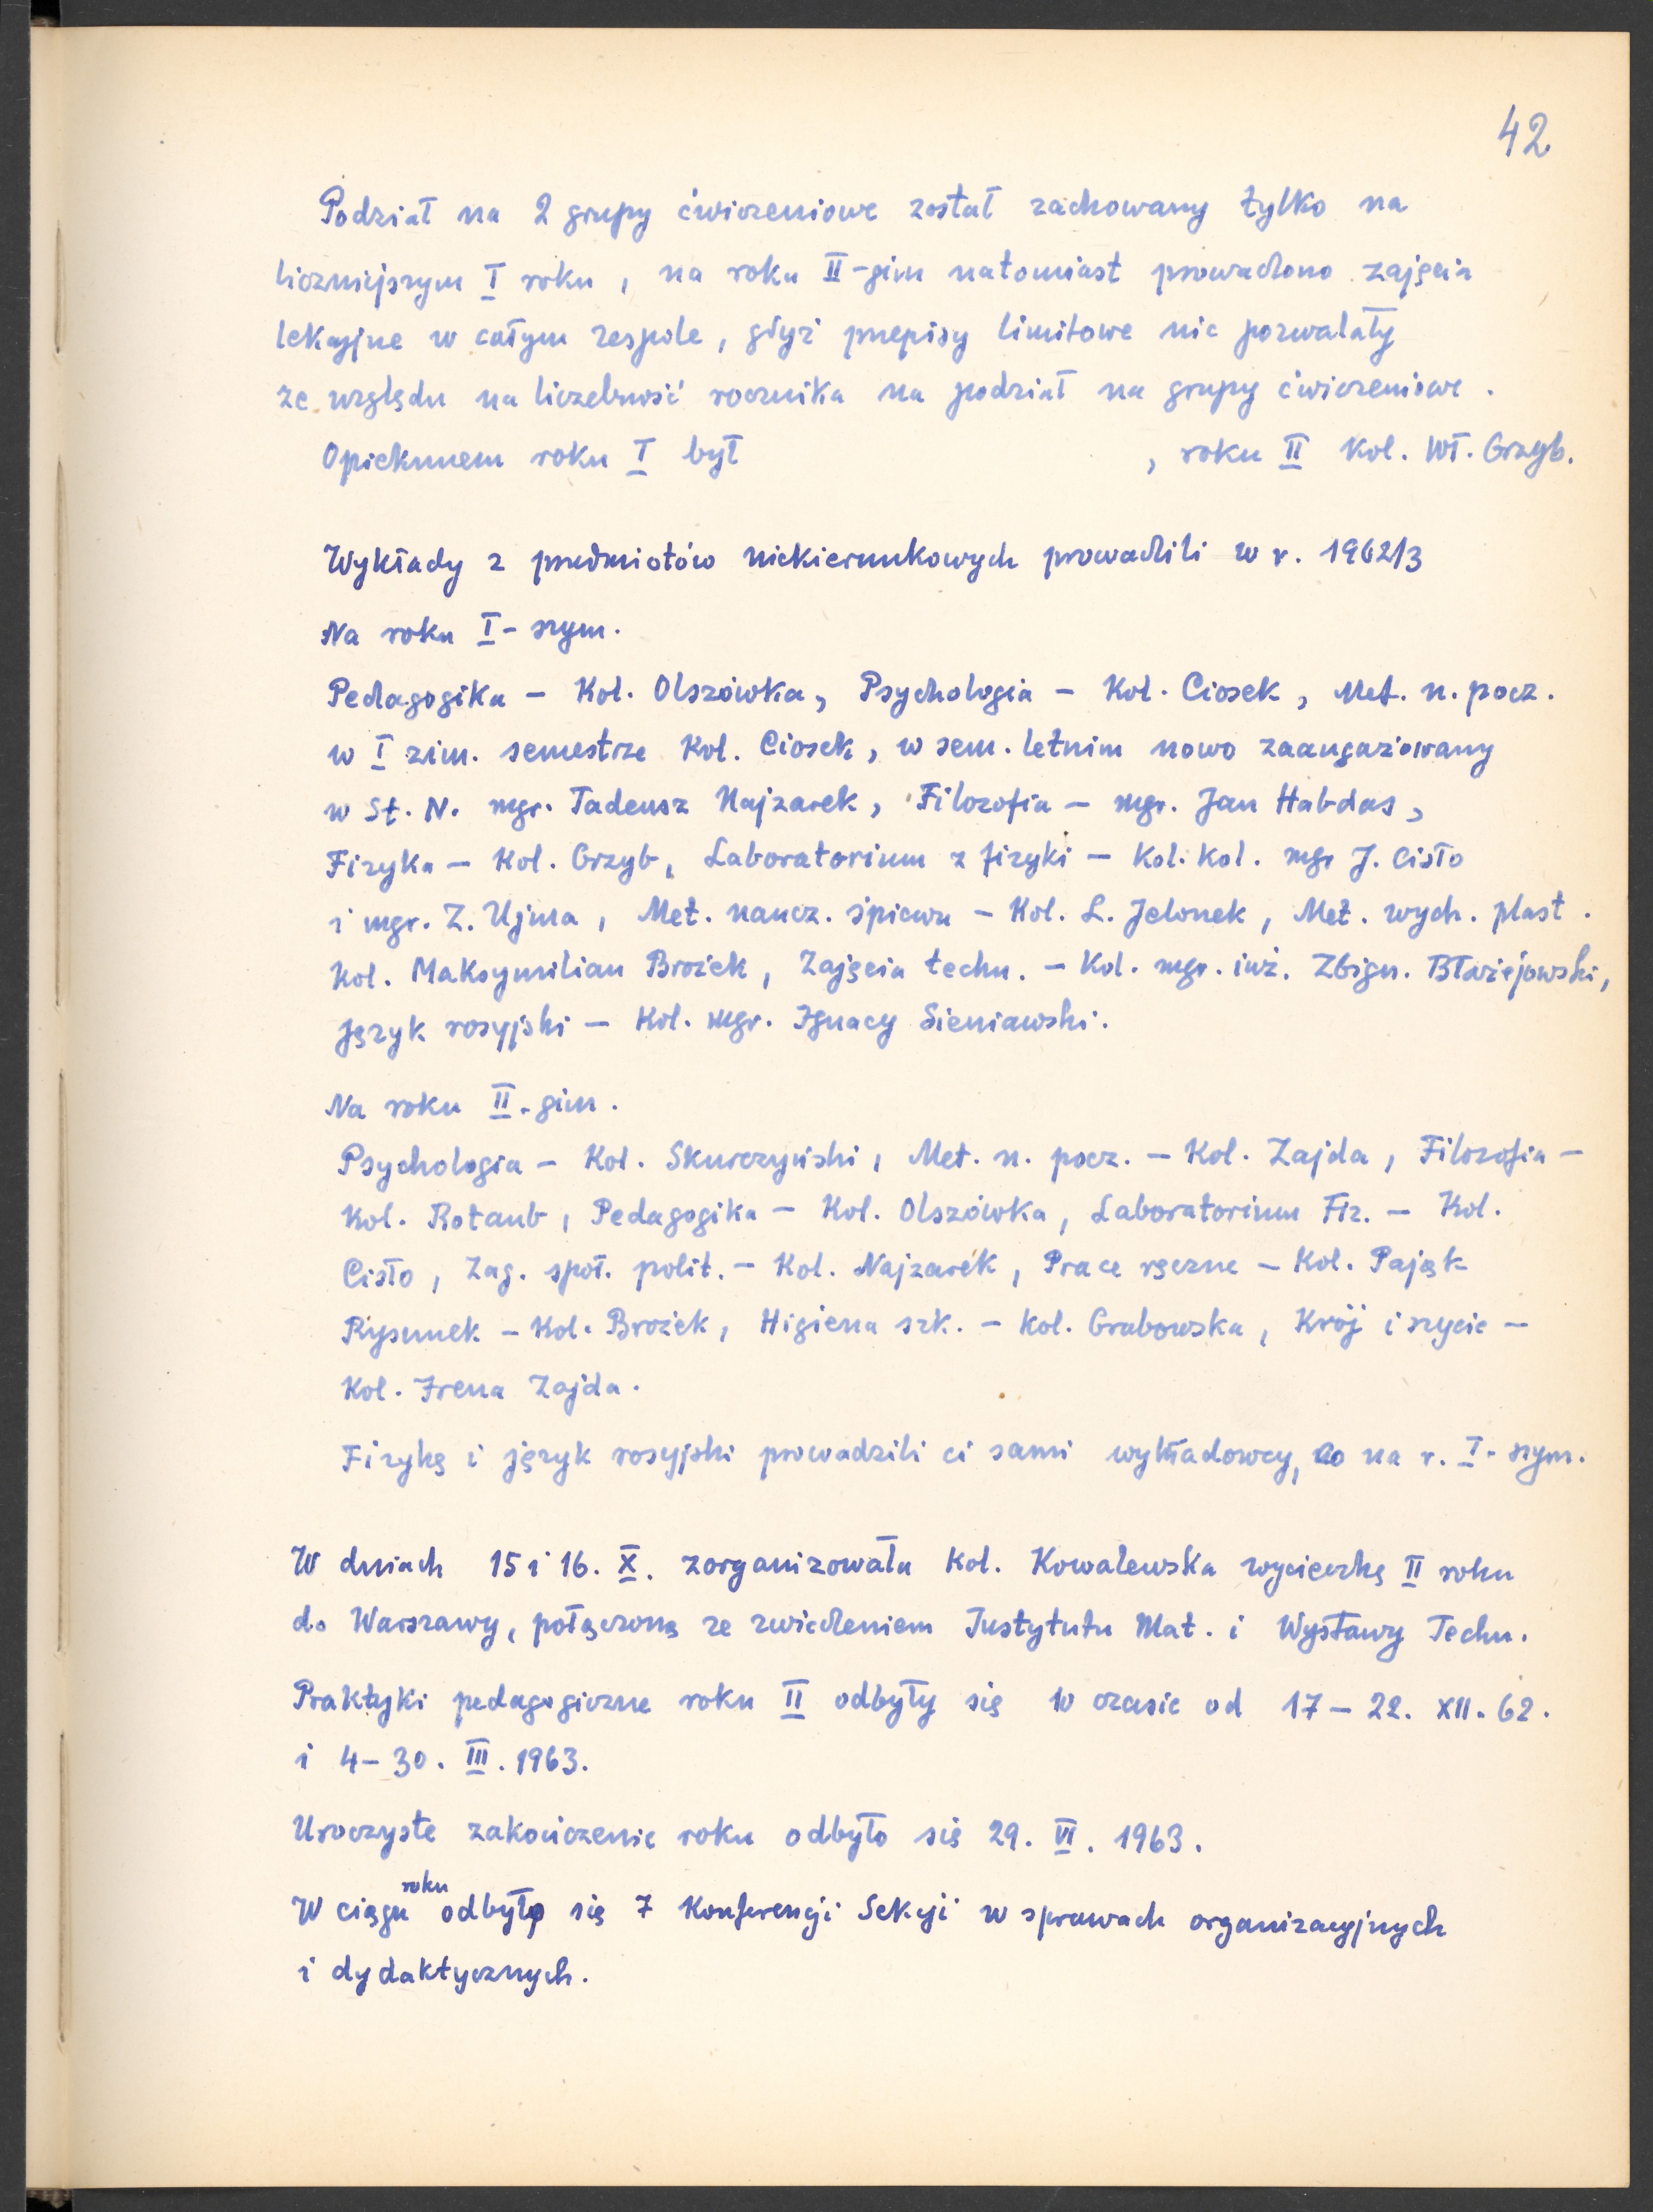 42
Podział na 2 grupy ćwiczeniowe został zachowany tylko na
liczniejszym I roku, na roku II-gim natomiast prowadzono zajęcia
lekcyjne w całym zespole, gdyż przepisy limitowe nie pozwalały
ze względu na liczebność rocznika na podział na grupy ćwiczeniowe.
Opiekunem roku I był , roku II Kol. Wł. Grzyb.
Wykłady z przedmiotów niekierunkowych prowadzili w r. 1962/3
Na roku I-szym.
Pedagogika – Kol. Olszówka, Psychologia – Kol. Ciosek, Met. n. pocz.
w I zim. semestrze Kol. Ciosek, w sem. letnim nowo zaangażowany
w St. N. mgr. Tadeusz Najzarek, Filozofia – mgr. Jan Habdas,
Fizyka – Kol. Grzyb, Laboratorium z fizyki – Kol. Kol. mgr J. Cisło
i mgr. Z. Ujma, Met. naucz. śpiewu – Kol. L. Jelonek, Met. wych. plast.
Kol. Maksymilian Brożek, Zajęcia techn. – Kol. mgr. inż. Zbign. Błażejowski,
Język rosyjski – Kol. mgr. Ignacy Sieniawski.
Na roku II-gim.
Psychologia – Kol. Skurczyński, Met. n. pocz. – Kol. Zajda, Filozofia –
Kol. Rotaub, Pedagogika – Kol. Olszówka, Laboratorium Fiz. – Kol.
Cisło, Zag. społ. polit. – Kol. Najzarek, Prace ręczne – Kol. Pająk
Rysunek – Kol. Brożek, Higiena szk. – Kol. Grabowska, Krój i szycie –
Kol. Irena Zajda.
Fizykę i język rosyjski prowadzili ci sami wykładowcy, co na r. I-szym.
W dniach 15 i 16. X. zorganizowała Kol. Kowalewska wycieczkę II roku
do Warszawy, połączoną ze zwiedzeniem Instytutu Mat. i Wystawy Techn.
Praktyki pedagogiczne roku II odbyły się w czasie od 17 – 22. XII. 62.
i 4 – 30. III. 1963.
Uroczyste zakończenie roku odbyło się 29. VI. 1963.
W ciągu roku odbyło się 7 Konferencji Sekcji w sprawach organizacyjnych
i dydaktycznych.